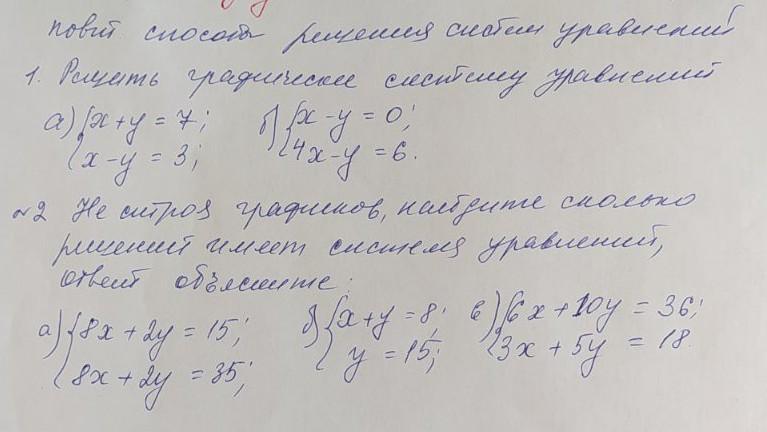 повт способы решения систем уравнений
1. Решить графически систему уравнений
а) { x + y = 7; б) { x - y = 0;
x - y = 3; 4x - y = 6.
№2 Не строя графиков, найдите сколько
решений имеет система уравнений,
ответ объясните:
а) { 8x + 2y = 15; б) { x + y = 8; в) { 6x + 10y = 36;
8x + 2y = 35; y = 15; 3x + 5y = 18.